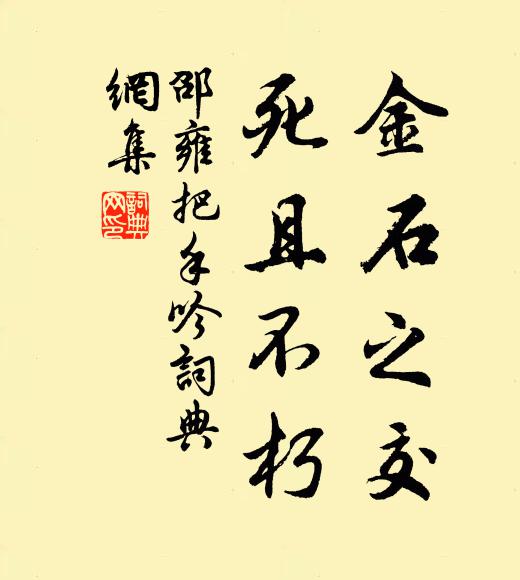 金石之交
死且不朽
邵雍把手吟詞典
網集
詞典
网印